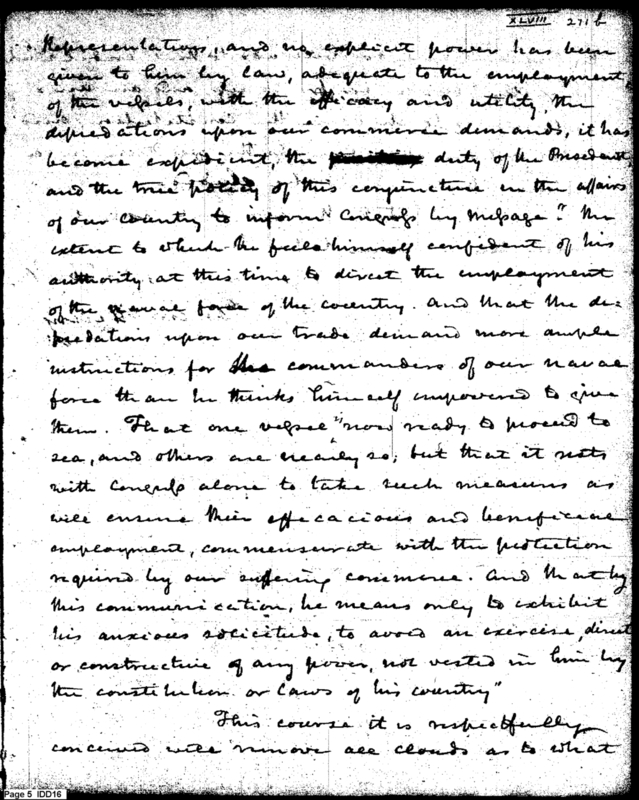 XLVIII 271 b
Representatives, and no explicit power has been
given to him by law, adequate to the employment
of the vessels, with the efficacy and utility the
depredations upon our commerce demands, it has
become expedient, the duty of the President
and the true policy of this conjuncture in the affairs
of our country to inform Congress by message "The
extent to which he feels himself confident of his
authority at this time to direct the employment
of the naval force of the country. And that the de-
predations upon our trade demand more ample
instructions for the commanders of our naval
force than he thinks himself empowered to give
them. That one vessel is now ready to proceed to
sea, and others are nearly so; but that it rests
with Congress alone to take such measures as
will ensure their efficacious and beneficial
employment, commensurate with the protection
required by our suffering commerce. And that by
this communication, he means only to exhibit
his anxious solicitude, to avoid an exercise, direct
or constructive of any power, not vested in him by
the constitution or Laws of his country"
This course it is respectfully
conceived will remove all clouds as to what
Page 5 IDD16